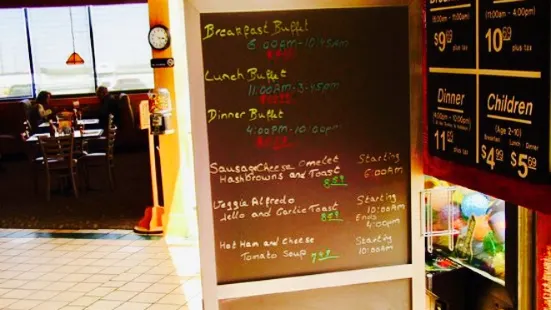 Breakfast Buffet
6:00AM-10:45AM
Lunch Buffet
11:00AM-3:45PM
Dinner Buffet
4:00PM-10:00PM
Sausage Cheese Omelet Starting
Hashbrowns and Toast 8.59 6:00AM
Veggie Alfredo Starting
Jello and Garlic Toast 8.59 10:00AM
Ends
4:00PM
Hot Ham and Cheese Starting
Tomato Soup 7.49 10:00AM
$9
plus tax
(11:00AM - 4:00PM)
10
plus tax
Dinner
11
plus tax
Children
(Age 2-10)
Breakfast
$4
$5